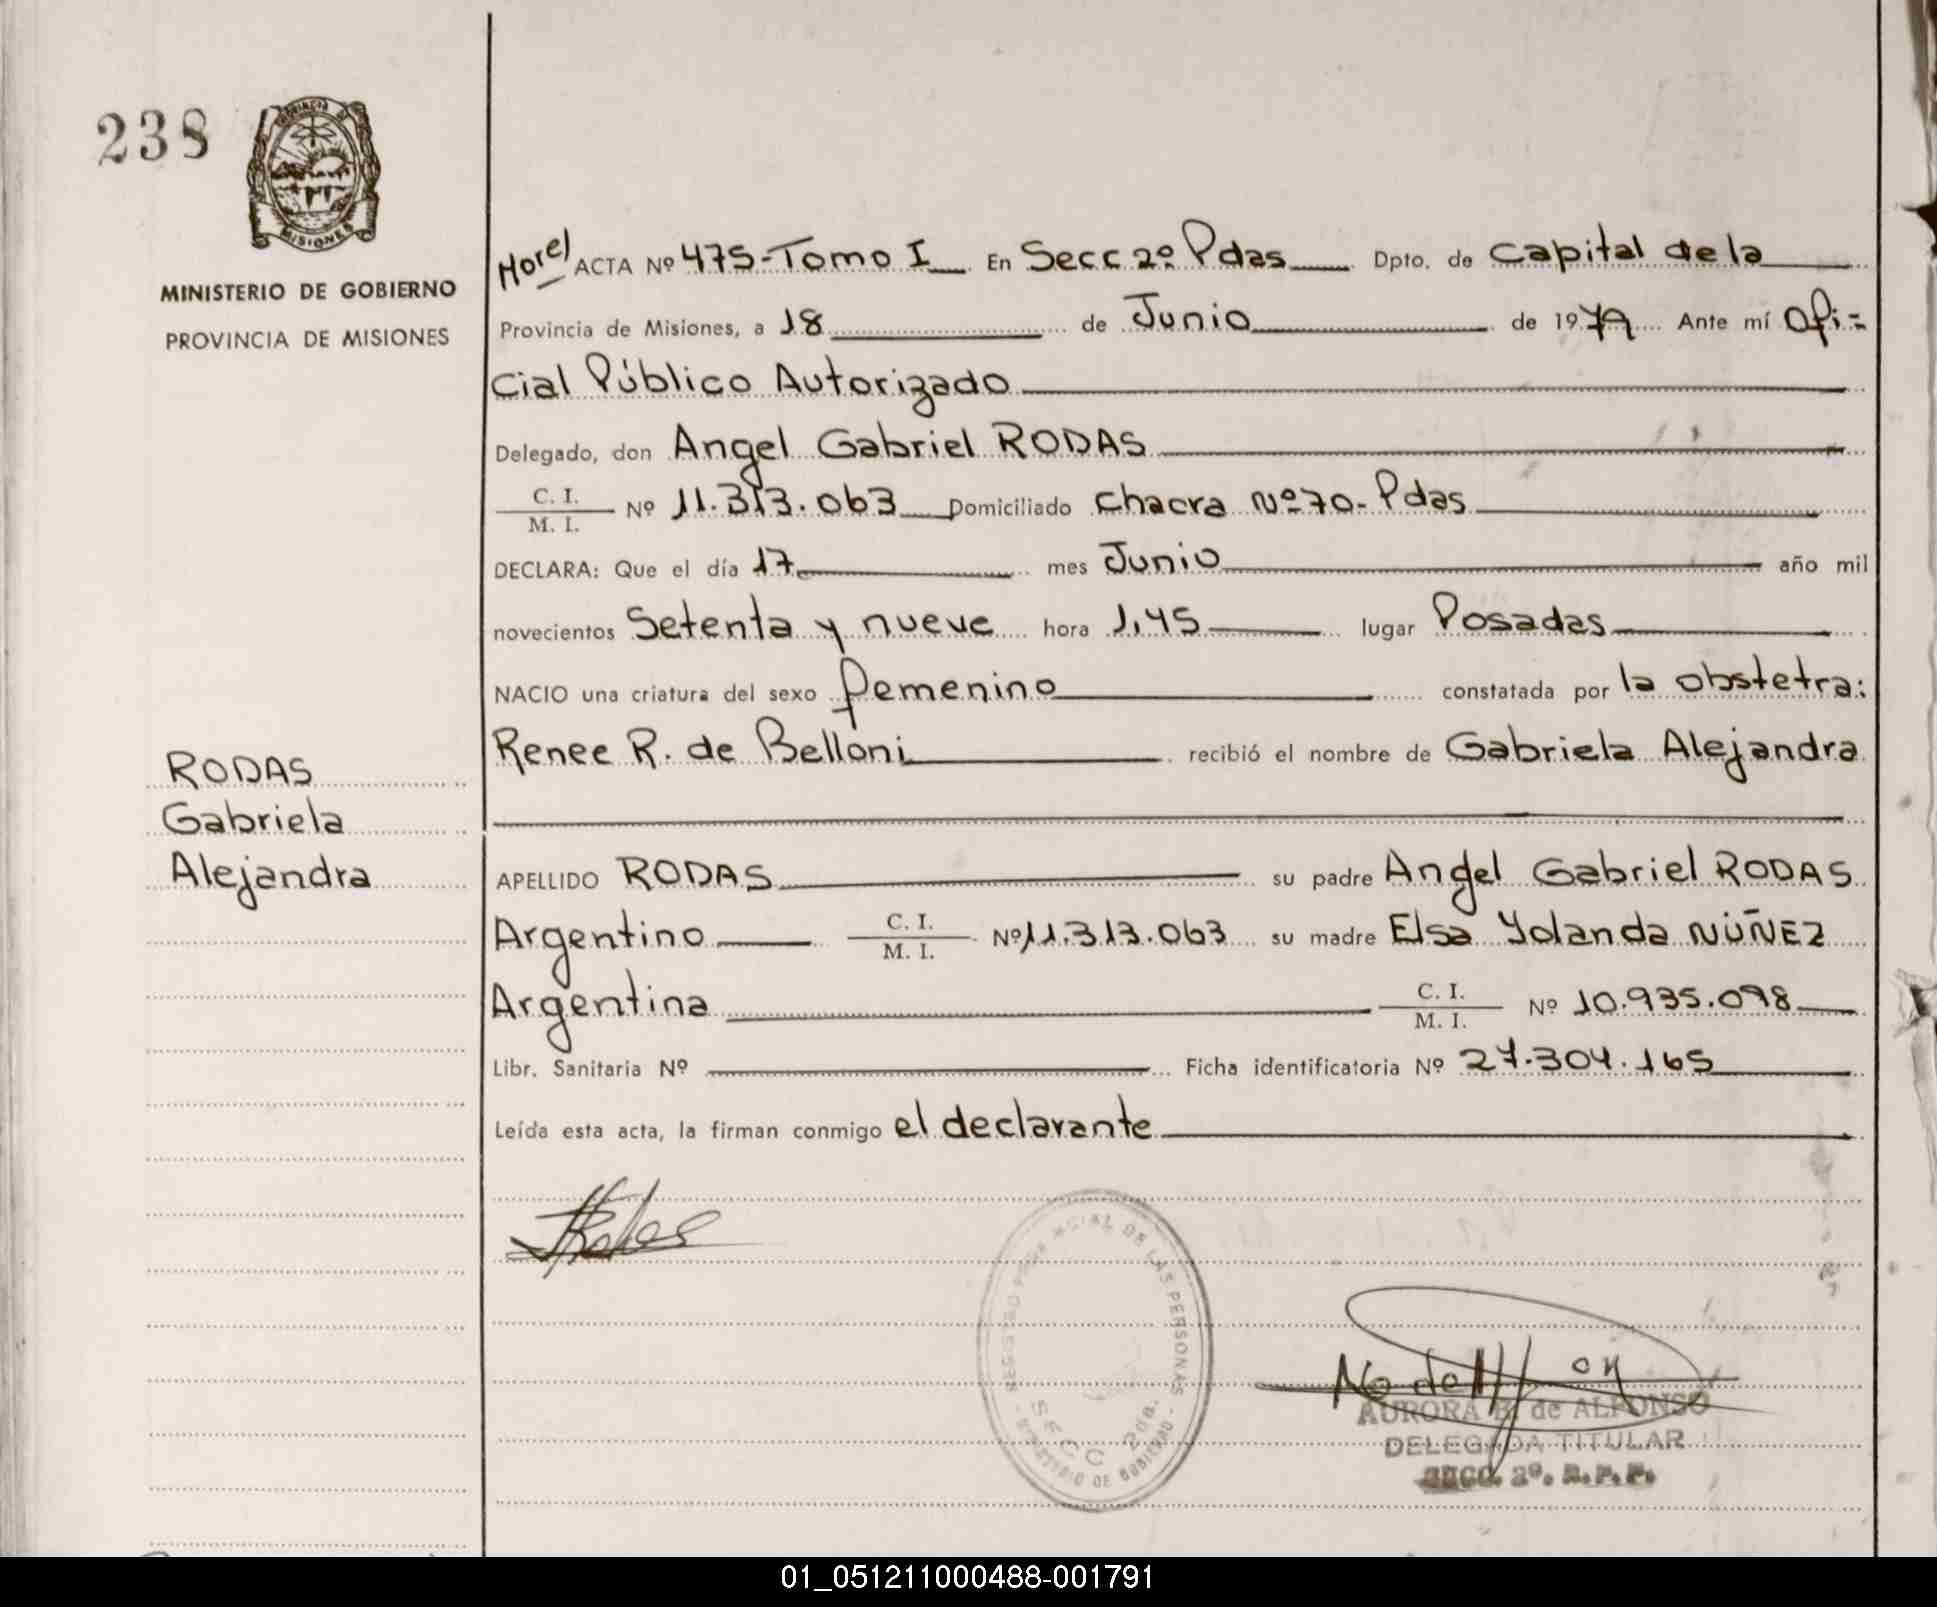 238
PROVINCIA DE
MISIONES
MINISTERIO DE GOBIERNO
PROVINCIA DE MISIONES
RODAS
Gabriela
Alejandra
ACTA Nº 475-Tomo I En Secc 2º Pdas Dpto. de Capital de la
Provincia de Misiones, a 18 de Junio de 1979 Ante mí Ofi=
cial Público Autorizado
Delegado, don Angel Gabriel RODAS
C. I.
M. I. Nº 11.313.063 Domiciliado Chacra Nº 70- Pdas
DECLARA: Que el día 17 mes Junio año mil
novecientos Setenta y nueve hora 1,45 lugar Posadas
NACIO una criatura del sexo femenino constatada por la obstetra:
Renee R. de Belloni recibió el nombre de Gabriela Alejandra
APELLIDO RODAS su padre Angel Gabriel RODAS
Argentino C. I. M. I. Nº 11.313.063 su madre Elsa Yolanda NÚÑEZ
Argentina C. I. M. I. Nº 10.935.098
Libr. Sanitaria Nº Ficha identificatoria Nº 27.304.165
Leída esta acta, la firman conmigo el declarante
REGISTRO PROVINCIAL DE LAS PERSONAS
SECC 2da.
MINISTERIO DE GOBIERNO
AURORA B. de ALFONSO
DELEGADA TITULAR
SECC. 2º. R.P.P.
01_051211000488-001791